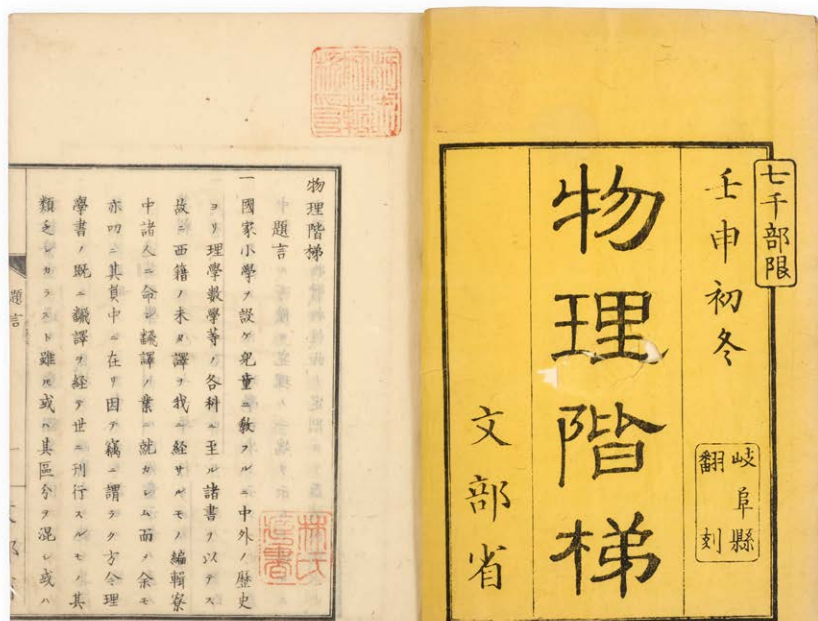 七千部限
壬申初冬
物理階梯
岐阜縣
翻刻
文部省
物理階梯
題言
一國家小學ヲ設ケ兒童ニ敎フルニ中外ノ歷史
ヨリ理學數學等ノ各科ニ至ル諸書ヲ以テス
故ニ西籍ノ未タ譯ヲ我ニ経サルモノ編輯寮
中諸人ニ命シ飜譯ノ業ニ就カシム而メ余モ
亦叨ニ其員中ニ在リ因テ竊ニ謂ラク方今理
學書ノ既ニ飜譯ヲ経テ世ニ刊行スルモノ其
類乏シカラスト雖𪜈或ハ其區分ヲ混シ或ハ
題言
一
林氏
藏書